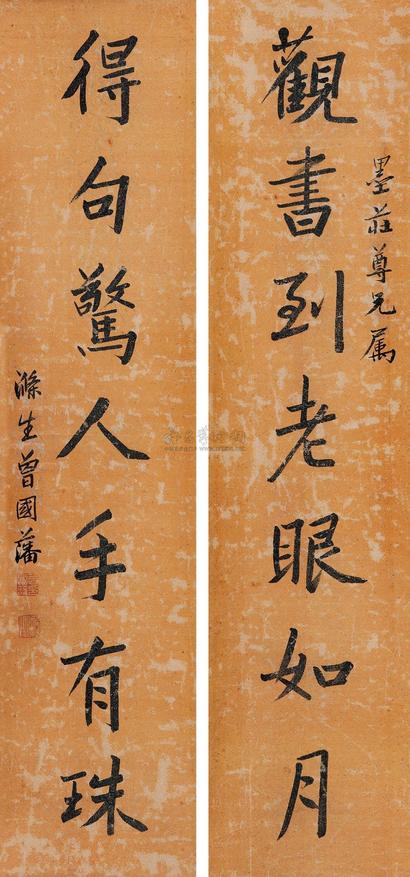 墨莊尊兄属
觀書到老眼如月
得句驚人手有珠
滌生曾國藩